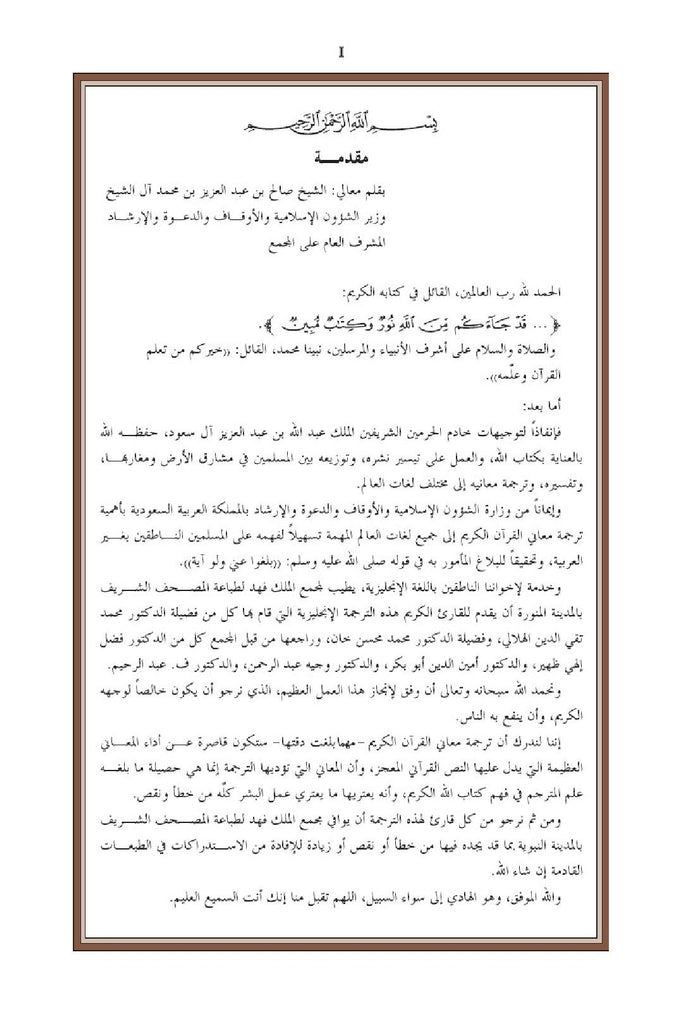 I
بِسْمِ اللَّهِ الرَّحْمَٰنِ الرَّحِيمِ
مقدمـــة
بقلم معالي: الشيخ صالح بن عبد العزيز بن محمد آل الشيخ
وزير الشؤون الإسلامية والأوقـاف والدعـوة والإرشـاد
المشرف العام على المجمع
الحمد لله رب العالمين، القائل في كتابه الكريم:
﴿... قَدْ جَاءَكُم مِّنَ اللَّهِ نُورٌ وَكِتَابٌ مُّبِينٌ ﴾.
والصلاة والسلام على أشرف الأنبياء والمرسلين، نبينا محمد، القائل: ((خيركم من تعلم
القرآن وعلّمه)).
أما بعد:
فإنفاذاً لتوجيهات خادم الحرمين الشريفين الملك عبد الله بن عبد العزيز آل سعود، حفظـه الله
بالعناية بكتاب الله، والعمل على تيسير نشره، وتوزيعه بين المسلمين في مشارق الأرض ومغاربها،
وتفسيره، وترجمة معانيه إلى مختلف لغات العالم.
وإيماناً من وزارة الشؤون الإسلامية والأوقاف والدعوة والإرشاد بالمملكة العربية السعودية بأهمية
ترجمة معاني القرآن الكريم إلى جميع لغات العالم المهمة تسهيلاً لفهمه على المسلمين النـاطقين بغـير
العربية، وتحقيقاً للبلاغ المأمور به في قوله صلى الله عليه وسلم: ((بلغوا عني ولو آية)).
وخدمة لإخواننا الناطقين باللغة الإنجليزية، يطيب لمجمع الملك فهد لطباعة المصـحف الشـريف
بالمدينة المنورة أن يقدم للقارئ الكريم هذه الترجمة الإنجليزية التي قام بها كل من فضيلة الدكتور محمد
تقي الدين الهلالي، وفضيلة الدكتور محمد محسن خان، وراجعها من قبل المجمع كل من الدكتور فضل
إلهي ظهير، والدكتور أمين الدين أبو بكر، والدكتور وجيه عبد الرحمن، والدكتور ف. عبد الرحيم.
ونحمد الله سبحانه وتعالى أن وفق لإنجاز هذا العمل العظيم، الذي نرجو أن يكون خالصاً لوجهه
الكريم، وأن ينفع به الناس.
إننا لندرك أن ترجمة معاني القرآن الكريم -مهما بلغت دقتها- ستكون قاصرة عـن أداء المعـاني
العظيمة التي يدل عليها النص القرآني المعجز، وأن المعاني التي تؤديها الترجمة إنما هي حصيلة ما بلغـه
علم المترجم في فهم كتاب الله الكريم، وأنه يعتريها ما يعتري عمل البشر كلّه من خطأ ونقص.
ومن ثم نرجو من كل قارئ لهذه الترجمة أن يوافي مجمع الملك فهد لطباعة المصـحف الشـريف
بالمدينة النبوية بما قد يجده فيها من خطأ أو نقص أو زيادة للإفادة من الاسـتدراكات في الطبعـات
القادمة إن شاء الله.
والله الموفق، وهو الهادي إلى سواء السبيل، اللهم تقبل منا إنك أنت السميع العليم.